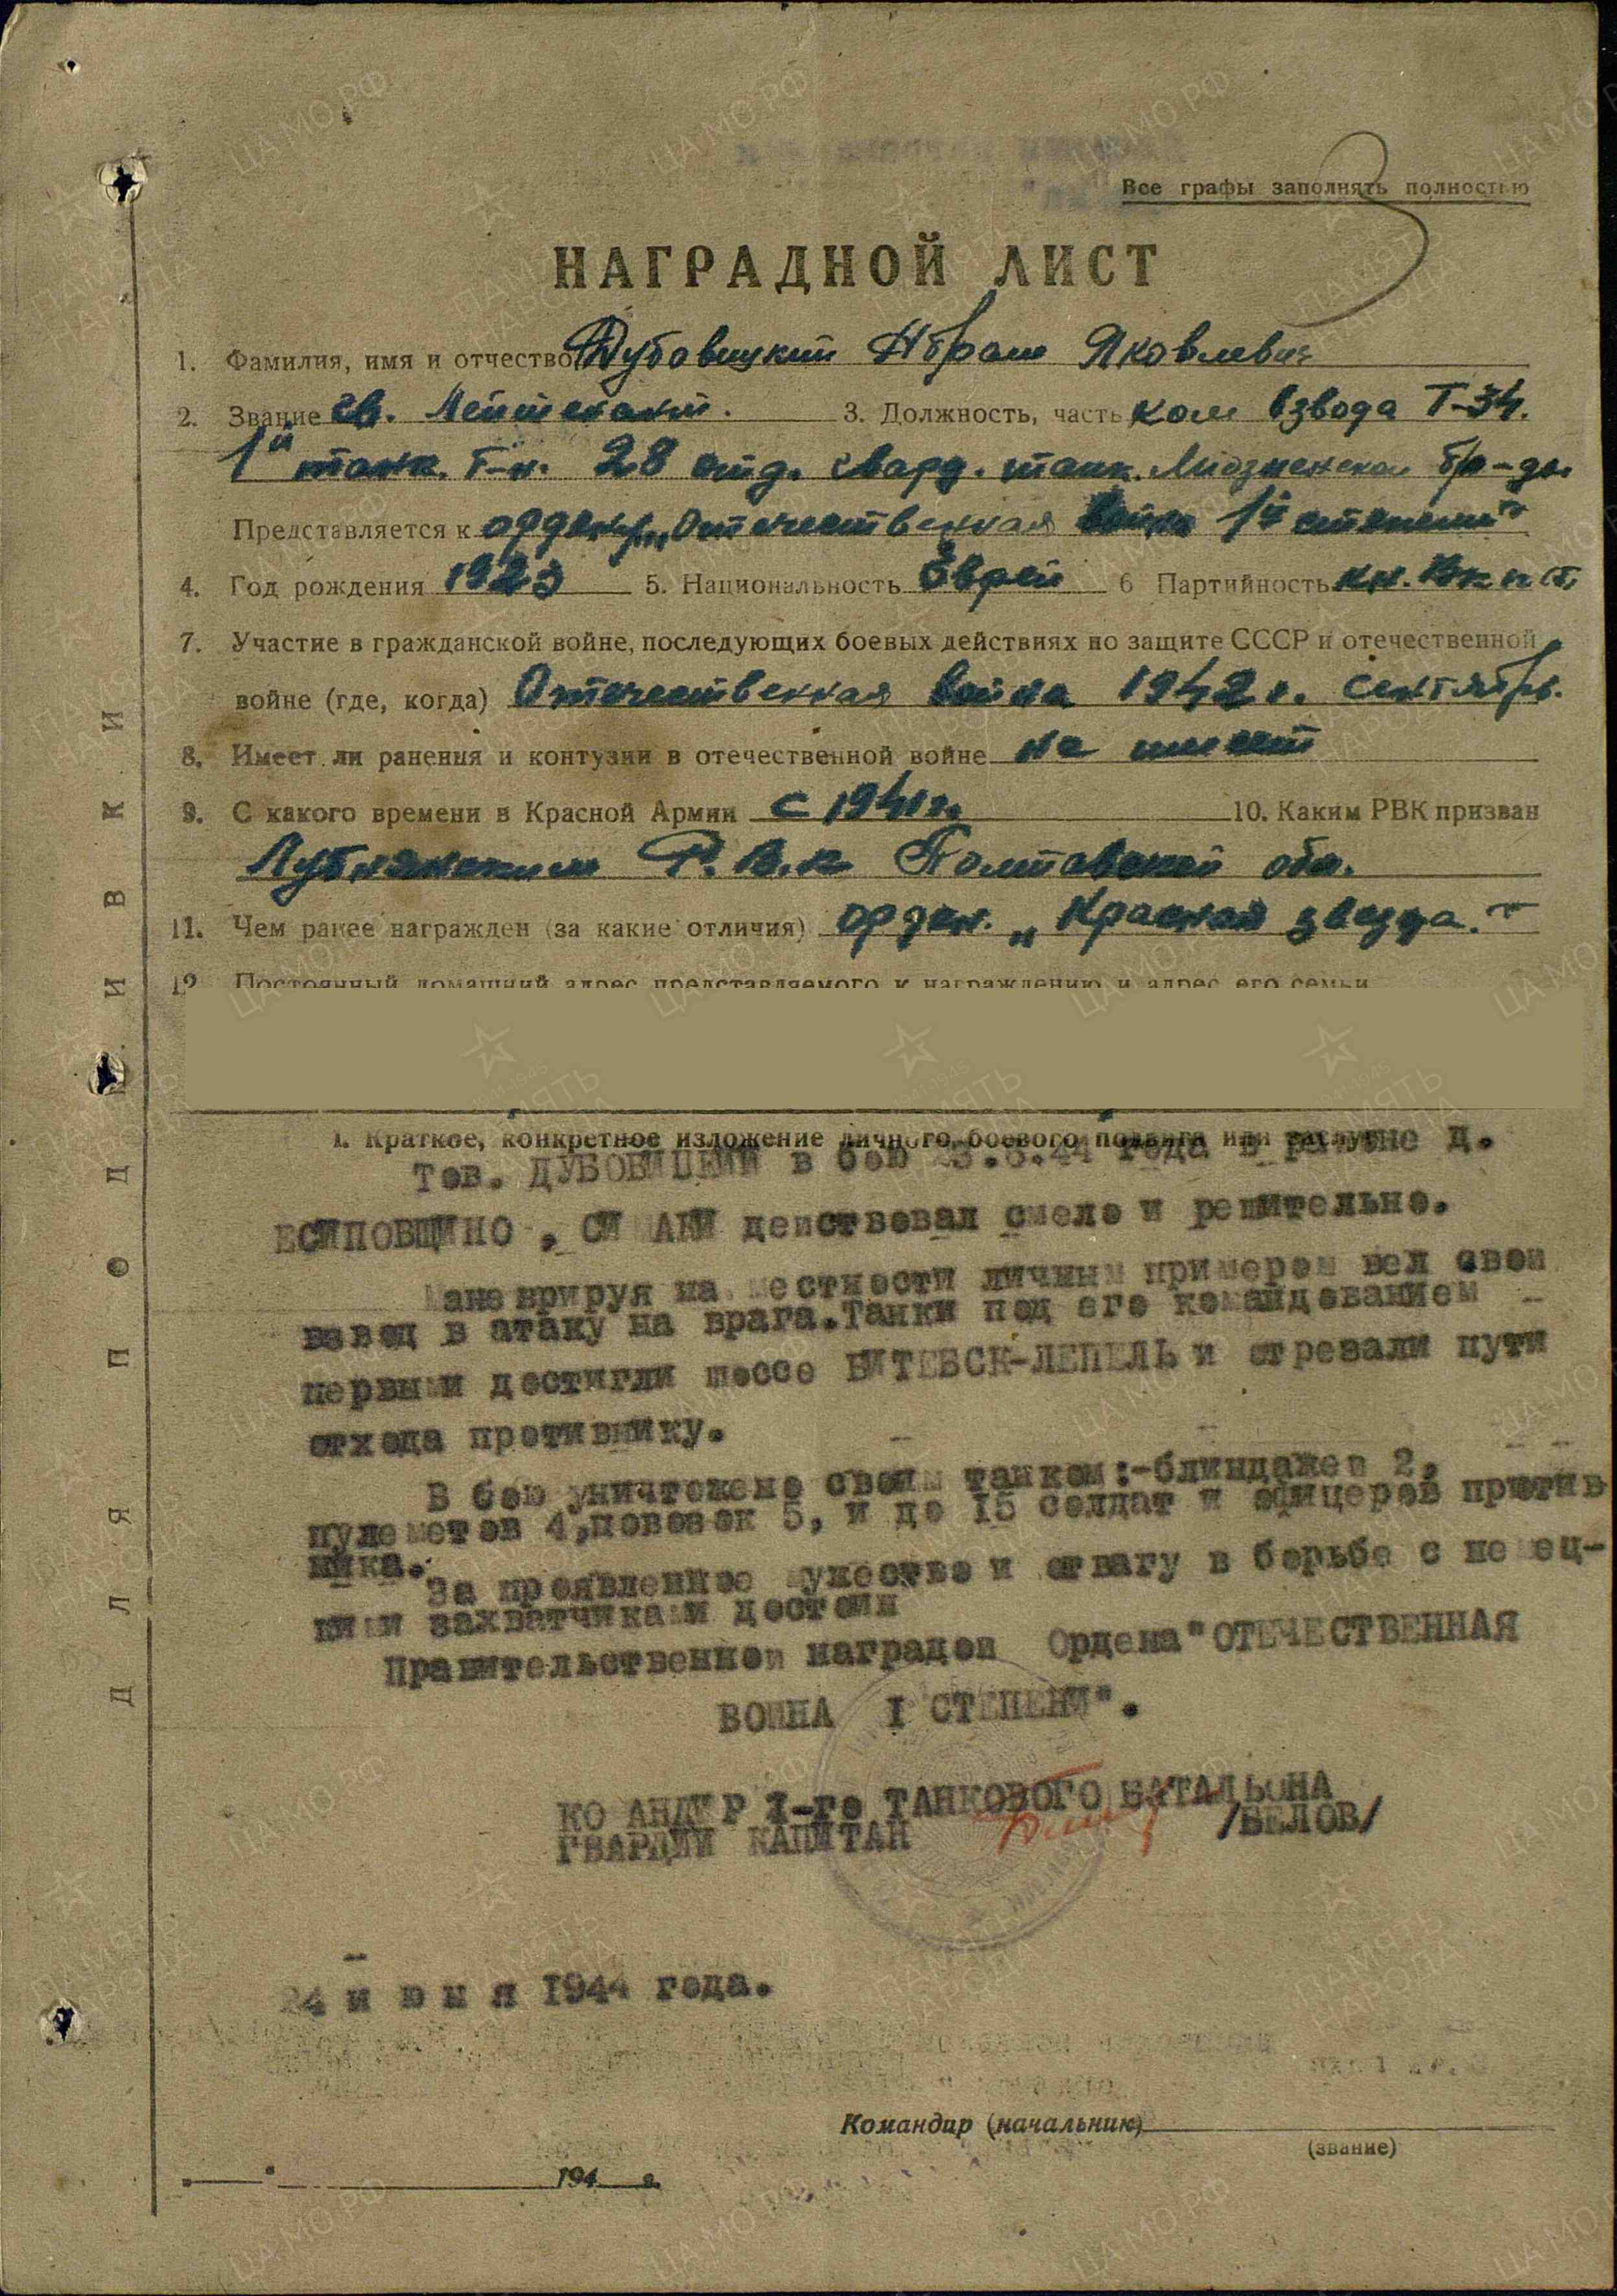 Все графы заполнять полностью
НАГРАДНОЙ ЛИСТ
1. Фамилия, имя и отчество Дубовицкий Абрам Яковлевич
2. Звание гв. Лейтенант. 3. Должность, часть ком взвода Т-34.
1й танк. б-н. 28 отд. гвард. танк. Лиозненской бр-ды.
Представляется к ордену „Отечественная война 1й степени"
4. Год рождения 1923 5. Национальность Еврей 6 Партийность кн. ВКП(б)
7. Участие в гражданской войне, последующих боевых действиях по защите СССР и отечественной
войне (где, когда) Отечественная война 1942 г. сентябрь.
8. Имеет ли ранения и контузии в отечественной войне не имеет
9. С какого времени в Красной Армии с 1941 г. 10. Каким РВК призван
Лубнянским Р.В.К Полтавской обл.
11. Чем ранее награжден (за какие отличия) орден. „Красная звезда."
12 Постоянный домашний адрес представляемого к награждению и адрес его семьи
1. Краткое, конкретное изложение личного боевого подвига или заслуг
Тов. ДУБОВИЦКИЙ в бою 23.6.44 года в районе д.
ЕСИПОВЩИНО, СИМАКИ действовал смело и решительно.
Маневрируя на местности личным примером вел свой
взвод в атаку на врага. Танки под его командованием
первыми достигли шоссе ВИТЕБСК-ЛЕПЕЛЬ и отрезали пути
отхода противнику.
В бою уничтожено своим танком:-блиндажей 2,
пулеметов 4, повозок 5, и до 15 солдат и офицеров против
ника.
За проявленное мужество и отвагу в борьбе с немец-
кими захватчиками достоин
Правительственной наградой Ордена "ОТЕЧЕСТВЕННАЯ
ВОЙНА I СТЕПЕНИ".
КОМАНДИР 1-го ТАНКОВОГО БАТАЛЬОНА
ГВАРДИИ КАПИТАН /БЕЛОВ/
24 и ю н я 1944 года.
Командир (начальник)
(звание)
" " 194 г.
ДЛЯ ПОДШИВКИ
ЦА МО РФ
ПАМЯТЬ НАРОДА